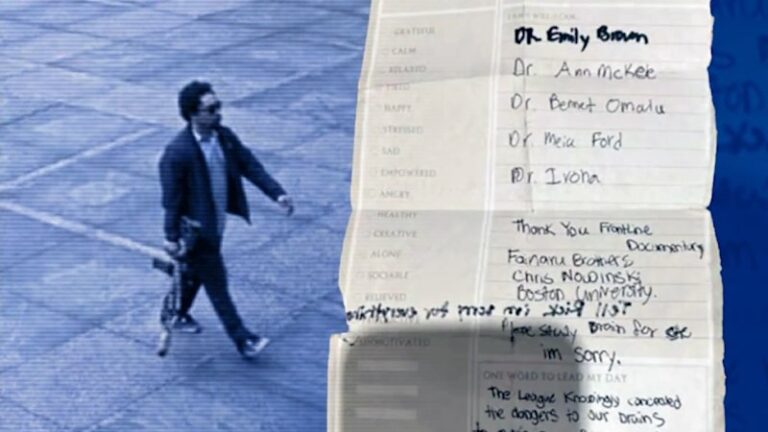 GRATEFUL
CALM
RELAXED
TIRED
HAPPY
STRESSED
SAD
EMPOWERED
ANGRY
HEALTHY
CREATIVE
ALONE
SOCIABLE
RELIEVED
UNMOTIVATED
DR. Emily Brown
Dr. Ann McKee
Dr. Bennet Omalu
Dr. Meia Ford
Dr. Ivona
Thank You Frontline
Documentary
Fainaru Brothers
Chris Nowinski
Boston University.
Please study Brain for
im sorry.
ONE WORD TO LEAD MY DAY
The League Knowingly concealed
the dangers to our brains